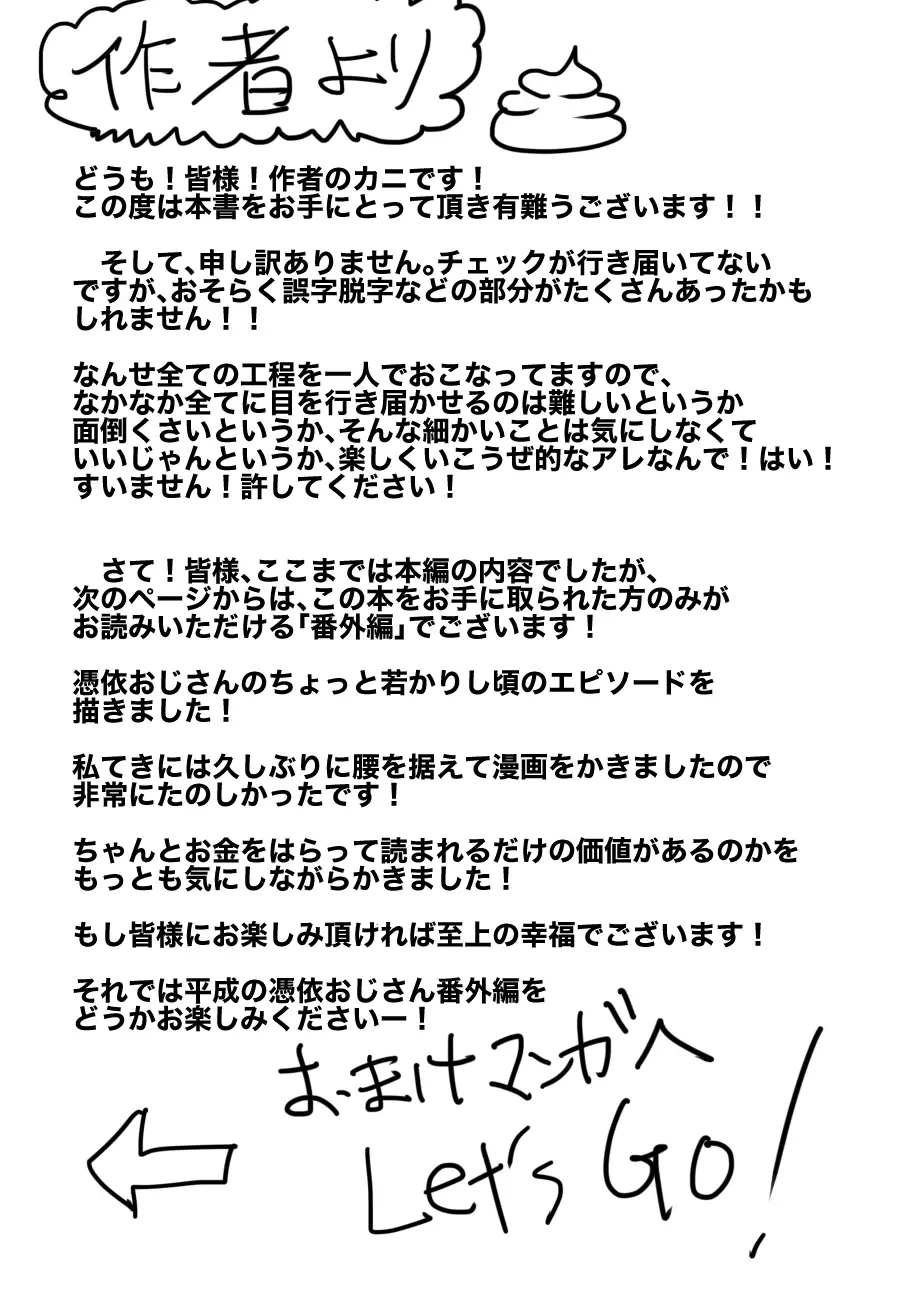 作者より
どうも！皆様！作者のカニです！
この度は本書をお手にとって頂き有難うございます！！
　そして、申し訳ありません。チェックが行き届いてない
ですが、おそらく誤字脱字などの部分がたくさんあったかも
しれません！！
なんせ全ての工程を一人でおこなってますので、
なかなか全てに目を行き届かせるのは難しいというか
面倒くさいというか、そんな細かいことは気にしなくて
いいじゃんというか、楽しくいこうぜ的なアレなんで！はい！
すいません！許してください！
　さて！皆様、ここまでは本編の内容でしたが、
次のページからは、この本をお手に取られた方のみが
お読みいただける「番外編」でございます！
憑依おじさんのちょっと若かりし頃のエピソードを
描きました！
私てきには久しぶりに腰を据えて漫画をかきましたので
非常にたのしかったです！
ちゃんとお金をはらって読まれるだけの価値があるのかを
もっとも気にしながらかきました！
もし皆様にお楽しみ頂ければ至上の幸福でございます！
それでは平成の憑依おじさん番外編を
どうかお楽しみくださいー！
おまけマンガへ
Let's Go!